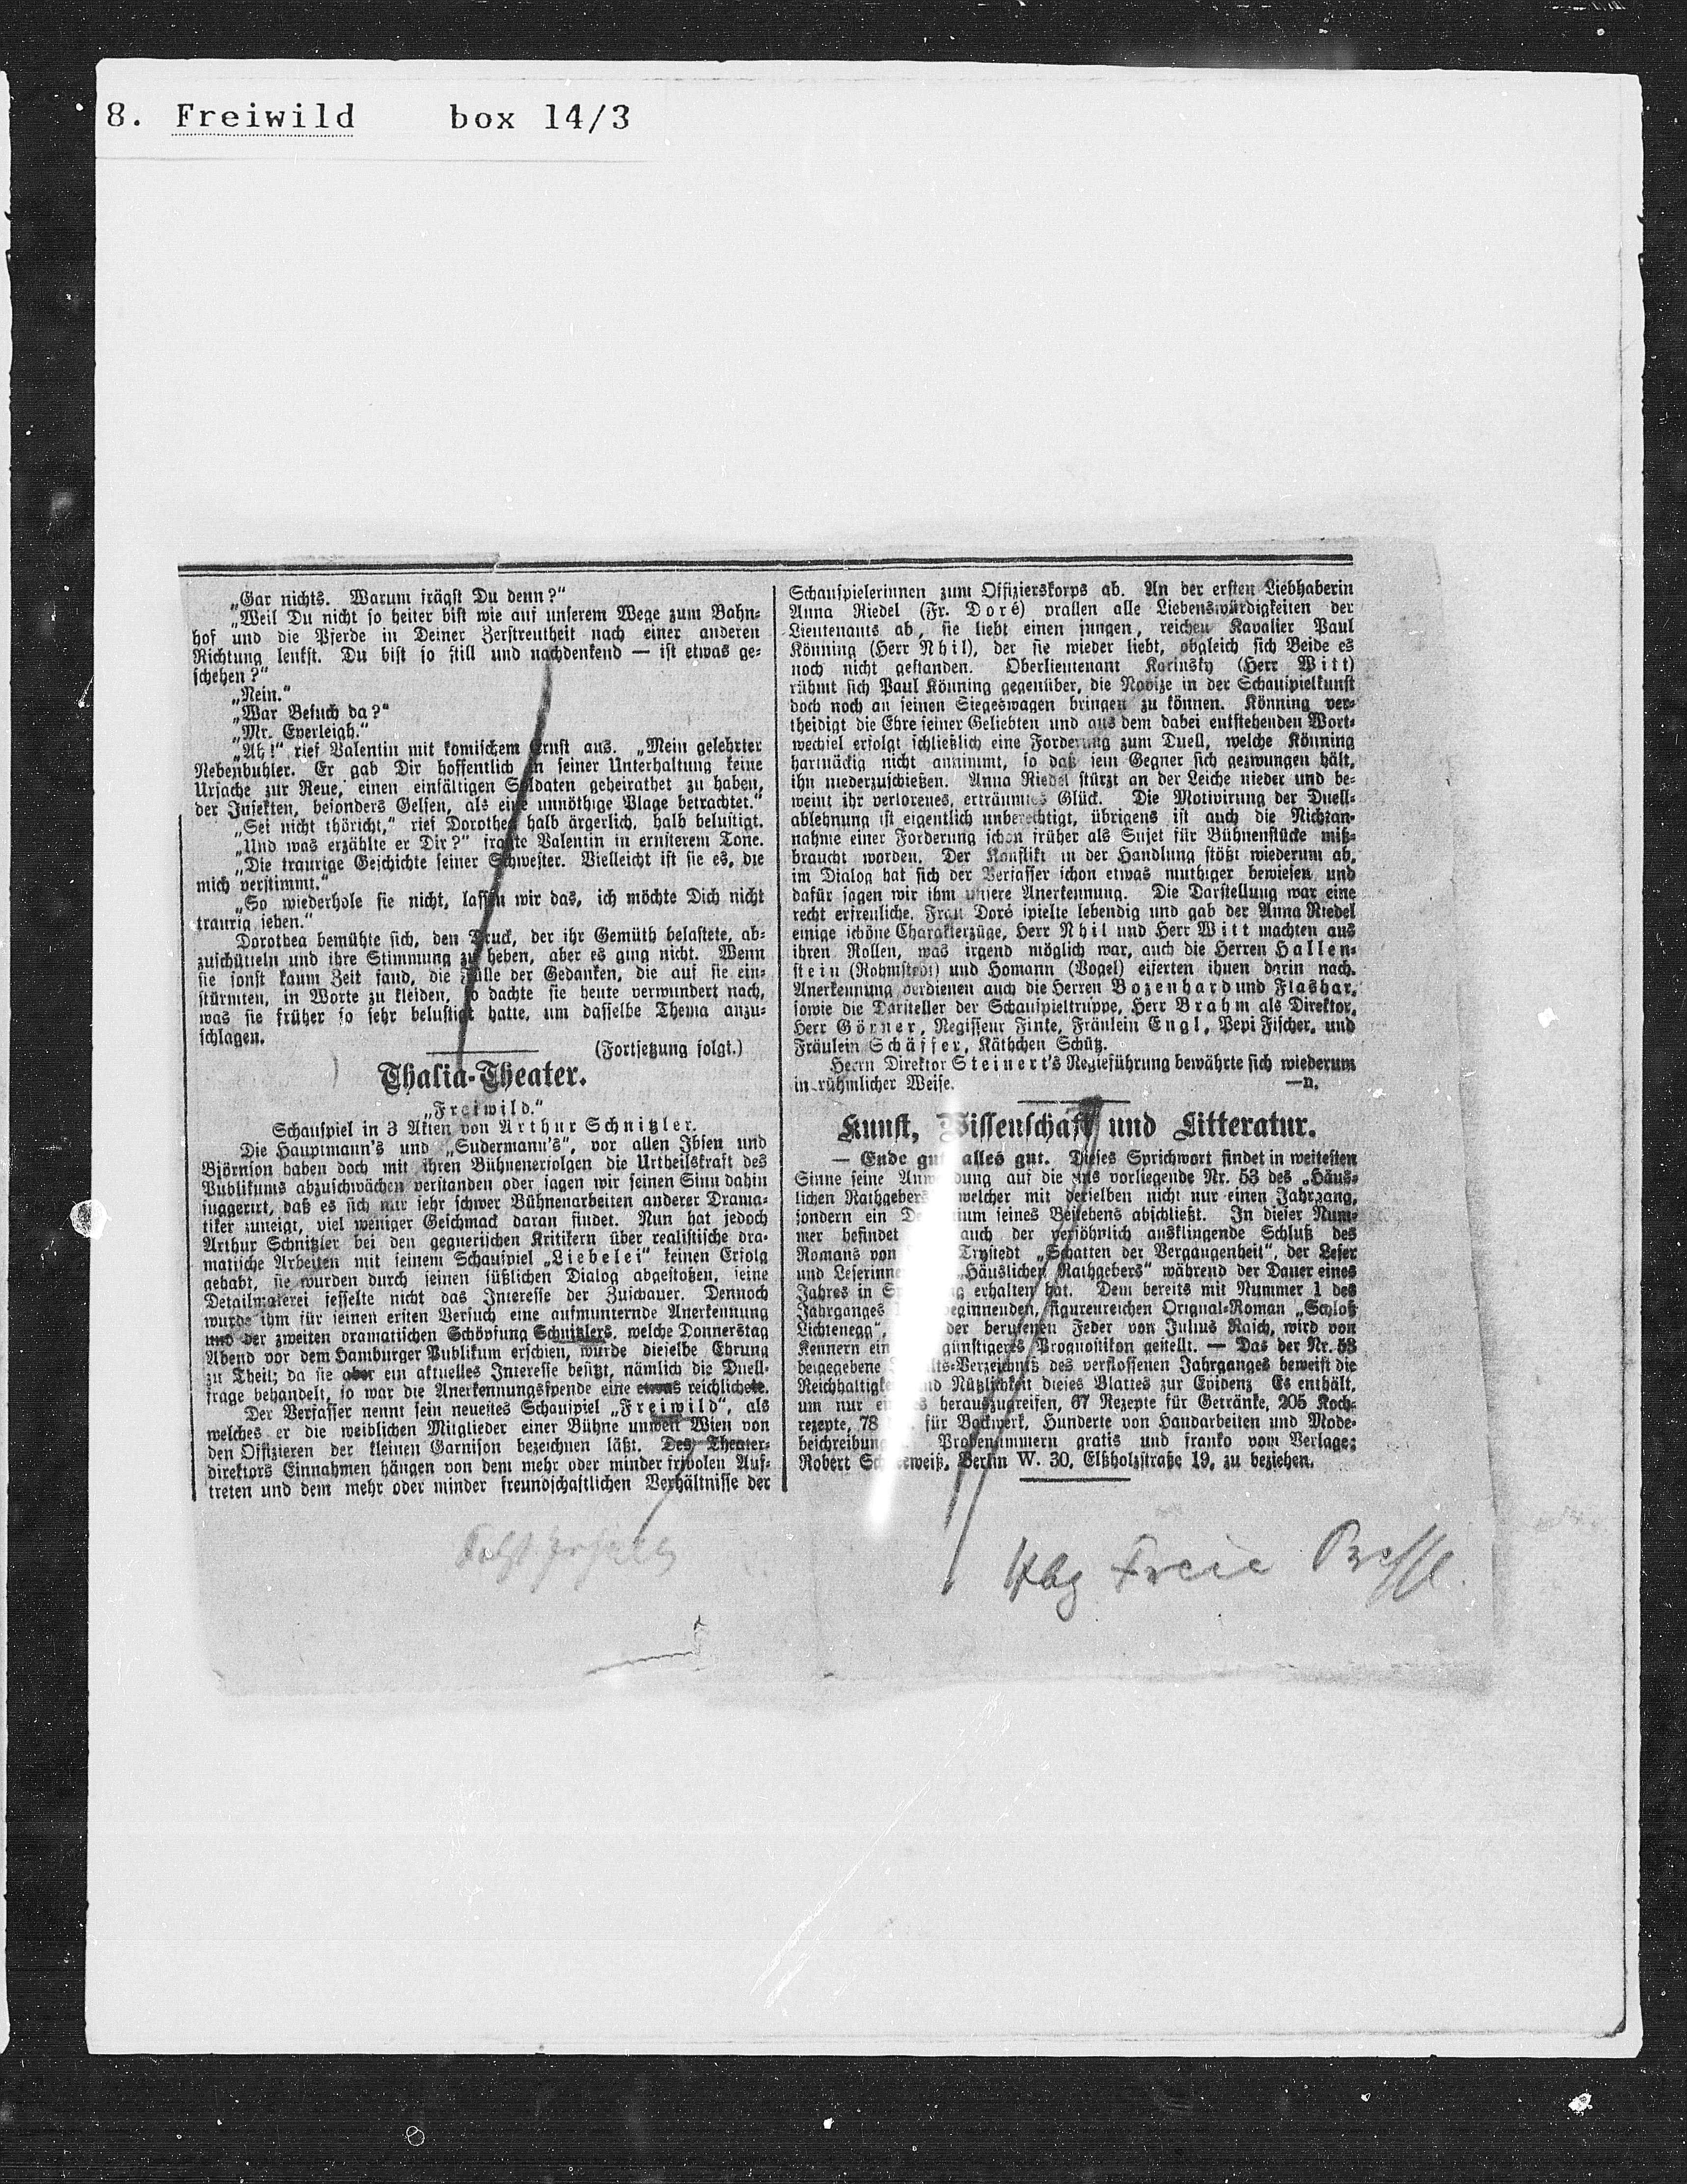 8. Freiwild box 14/3
„Gar nichts. Warum frägst Du denn?“
„Weil Du nicht so heiter bist wie auf unserem Wege zum Bahn-
hof und die Pferde in Deiner Zerstreutheit nach einer anderen
Richtung lenkst. Du bist so still und nachdenkend — ist etwas ge-
schehen?“
„Nein.“
„War Besuch da?“
„Mr. Everleigh.“
„Ah!“ rief Valentin mit komischem Ernst aus. „Mein gelehrter
Nebenbuhler. Er gab Dir hoffentlich in seiner Unterhaltung keine
Ursache zur Reue, einen einfältigen Soldaten geheirathet zu haben,
der Insekten, besonders Gelsen, als eine unnöthige Plage betrachtet.“
„Sei nicht thöricht,“ rief Dorothea halb ärgerlich, halb belustigt.
„Und was erzählte er Dir?“ fragte Valentin in ernsterem Tone.
„Die traurige Geschichte seiner Schwester. Vielleicht ist sie es, die
mich verstimmt.“
„So wiederhole sie nicht, lassen wir das, ich möchte Dich nicht
traurig sehen.“
Dorothea bemühte sich, den Druck, der ihr Gemüth belastete, ab-
zuschütteln und ihre Stimmung zu heben, aber es ging nicht. Wenn
sie sonst kaum Zeit fand, die Fülle der Gedanken, die auf sie ein-
stürmten, in Worte zu kleiden, so dachte sie heute verwundert nach,
was sie früher so sehr belustigt hatte, um dasselbe Thema anzu-
schlagen.
(Fortsetzung folgt.)
Thalia-Theater.
„Freiwild.“
Schauspiel in 3 Akten von Arthur Schnitzler.
Die Hauptmann's und „Sudermann's“, vor allen Ibsen und
Björnson haben doch mit ihren Bühnenerfolgen die Urtheilskraft des
Publikums abzuschwächen verstanden oder sagen wir seinen Sinn dahin
suggerirt, daß es sich nur sehr schwer Bühnenarbeiten anderer Drama-
tiker zuneigt, viel weniger Geschmack daran findet. Nun hat jedoch
Arthur Schnitzler bei den gegnerischen Kritikern über realistische dra-
matische Arbeiten mit seinem Schauspiel „Liebelei“ keinen Erfolg
gehabt, sie wurden durch seinen süßlichen Dialog abgestoßen, seine
Detailmalerei fesselte nicht das Interesse der Zuschauer. Dennoch
wurde ihm für seinen ersten Versuch eine aufmunternde Anerkennung
und der zweiten dramatischen Schöpfung Schnitzlers, welche Donnerstag
Abend vor dem Hamburger Publikum erschien, wurde dieselbe Ehrung
zu Theil; da sie aber ein aktuelles Interesse besitzt, nämlich die Duell-
frage behandelt, so war die Anerkennungsspende eine etwas reichlichere.
Der Verfasser nennt sein neuestes Schauspiel „Freiwild“, als
welches er die weiblichen Mitglieder einer Bühne unweit Wien von
den Offizieren der kleinen Garnison bezeichnen läßt. Des Theater-
direktors Einnahmen hängen von dem mehr oder minder frivolen Auf-
treten und dem mehr oder minder freundschaftlichen Verhältnisse der
Schauspielerinnen zum Offizierskorps ab. An der ersten Liebhaberin
Anna Riedel (Fr. Doré) prallen alle Liebenswürdigkeiten der
Lieutenants ab, sie liebt einen jungen, reichen Kavalier Paul
Könning (Herr Nhil), der sie wieder liebt, obgleich sich Beide es
noch nicht gestanden. Oberlieutenant Karinsky (Herr Witt)
rühmt sich Paul Könning gegenüber, die Novize in der Schauspielkunst
doch noch an seinen Siegeswagen bringen zu können. Könning ver-
theidigt die Ehre seiner Geliebten und aus dem dabei entstehenden Wort-
wechsel erfolgt schließlich eine Forderung zum Duell, welche Könning
hartnäckig nicht annimmt, so daß sein Gegner sich gezwungen hält,
ihn niederzuschießen. Anna Riedel stürzt an der Leiche nieder und be-
weint ihr verlorenes, erträumtes Glück. Die Motivirung der Duell-
ablehnung ist eigentlich unberechtigt, übrigens ist auch die Nichtan-
nahme einer Forderung schon früher als Sujet für Bühnenstücke miß-
braucht worden. Der Konflikt in der Handlung stößt wiederum ab,
im Dialog hat sich der Verfasser schon etwas muthiger bewiesen und
dafür sagen wir ihm unsere Anerkennung. Die Darstellung war eine
recht erfreuliche. Frau Doré spielte lebendig und gab der Anna Riedel
einige schöne Charakterzüge, Herr Nhil und Herr Witt machten aus
ihren Rollen, was irgend möglich war, auch die Herren Hallen-
stein (Rohnstedt) und Homann (Vogel) eiferten ihnen darin nach.
Anerkennung verdienen auch die Herren Bozenhard und Flashar,
sowie die Darsteller der Schauspieltruppe, Herr Brahm als Direktor,
Herr Görner, Regisseur Finke, Fräulein Engl, Pepi Fischer, und
Fräulein Schäffer, Käthchen Schütz.
Herrn Direktor Steinert's Regieführung bewährte sich wiederum
in rühmlicher Weise. —n.
Kunst, Wissenschaft und Litteratur.
— Ende gut alles gut. Dieses Sprichwort findet in weitesten
Sinne seine Anwendung auf die uns vorliegende Nr. 53 des „Häus-
lichen Rathgebers welcher mit derselben nicht nur einen Jahrgang,
sondern ein seines Bestehens abschließt. In dieser Num-
mer befindet auch der versöhnlich ausklingende Schluß des
Romans von Trystedt „Schatten der Vergangenheit“, der Leser
und Leserinnen „Häuslichen Rathgebers“ während der Dauer eines
Jahres in erhalten hat. Dem bereits mit Nummer 1 des
Jahrganges beginnenden, figurenreichen Orignal-Roman „Schloß
Lichtenegg“, der berufenen Feder von Julius Raich, wird von
Kennern ein günstigeres Prognostikon gestellt. — Das der Nr. 53
beigegebene Inhalts-Verzeichniß des verflossenen Jahrganges beweist die
Reichhaltigkeit und Nützlichkeit dieses Blattes zur Evidenz Es enthält,
um nur einiges herauszugreifen, 67 Rezepte für Getränke, 205 Koch-
rezepte, 78 für Backwerk, Hunderte von Handarbeiten und Mode-
beschreibungen. Probenummern gratis und franko vom Verlage:
Robert Schneeweiß, Berlin W. 30, Elßholzstraße 19, zu beziehen.
Hbg Freie Presse.